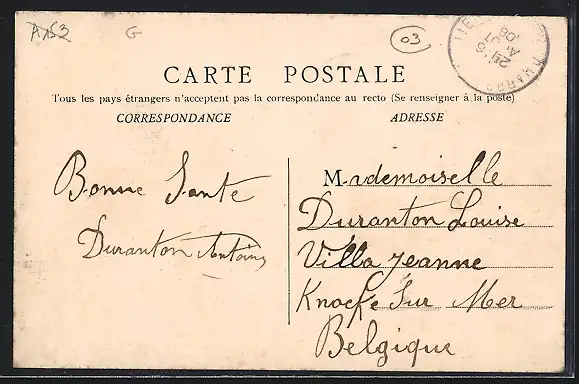 A153 G 03
CARTE POSTALE
Tous les pays étrangers n'acceptent pas la correspondance au recto (Se renseigner à la poste)
CORRESPONDANCE
ADRESSE
Bonne Santé
Duranton Antoine
Mademoiselle
Duranton Louise
Villa Jeanne
Knocke Sur Mer
Belgique